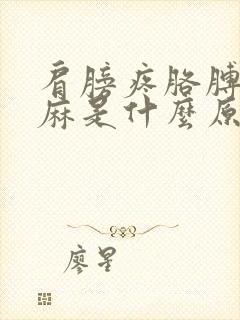 肩膀疼胳膊
麻是什麼原
廖星